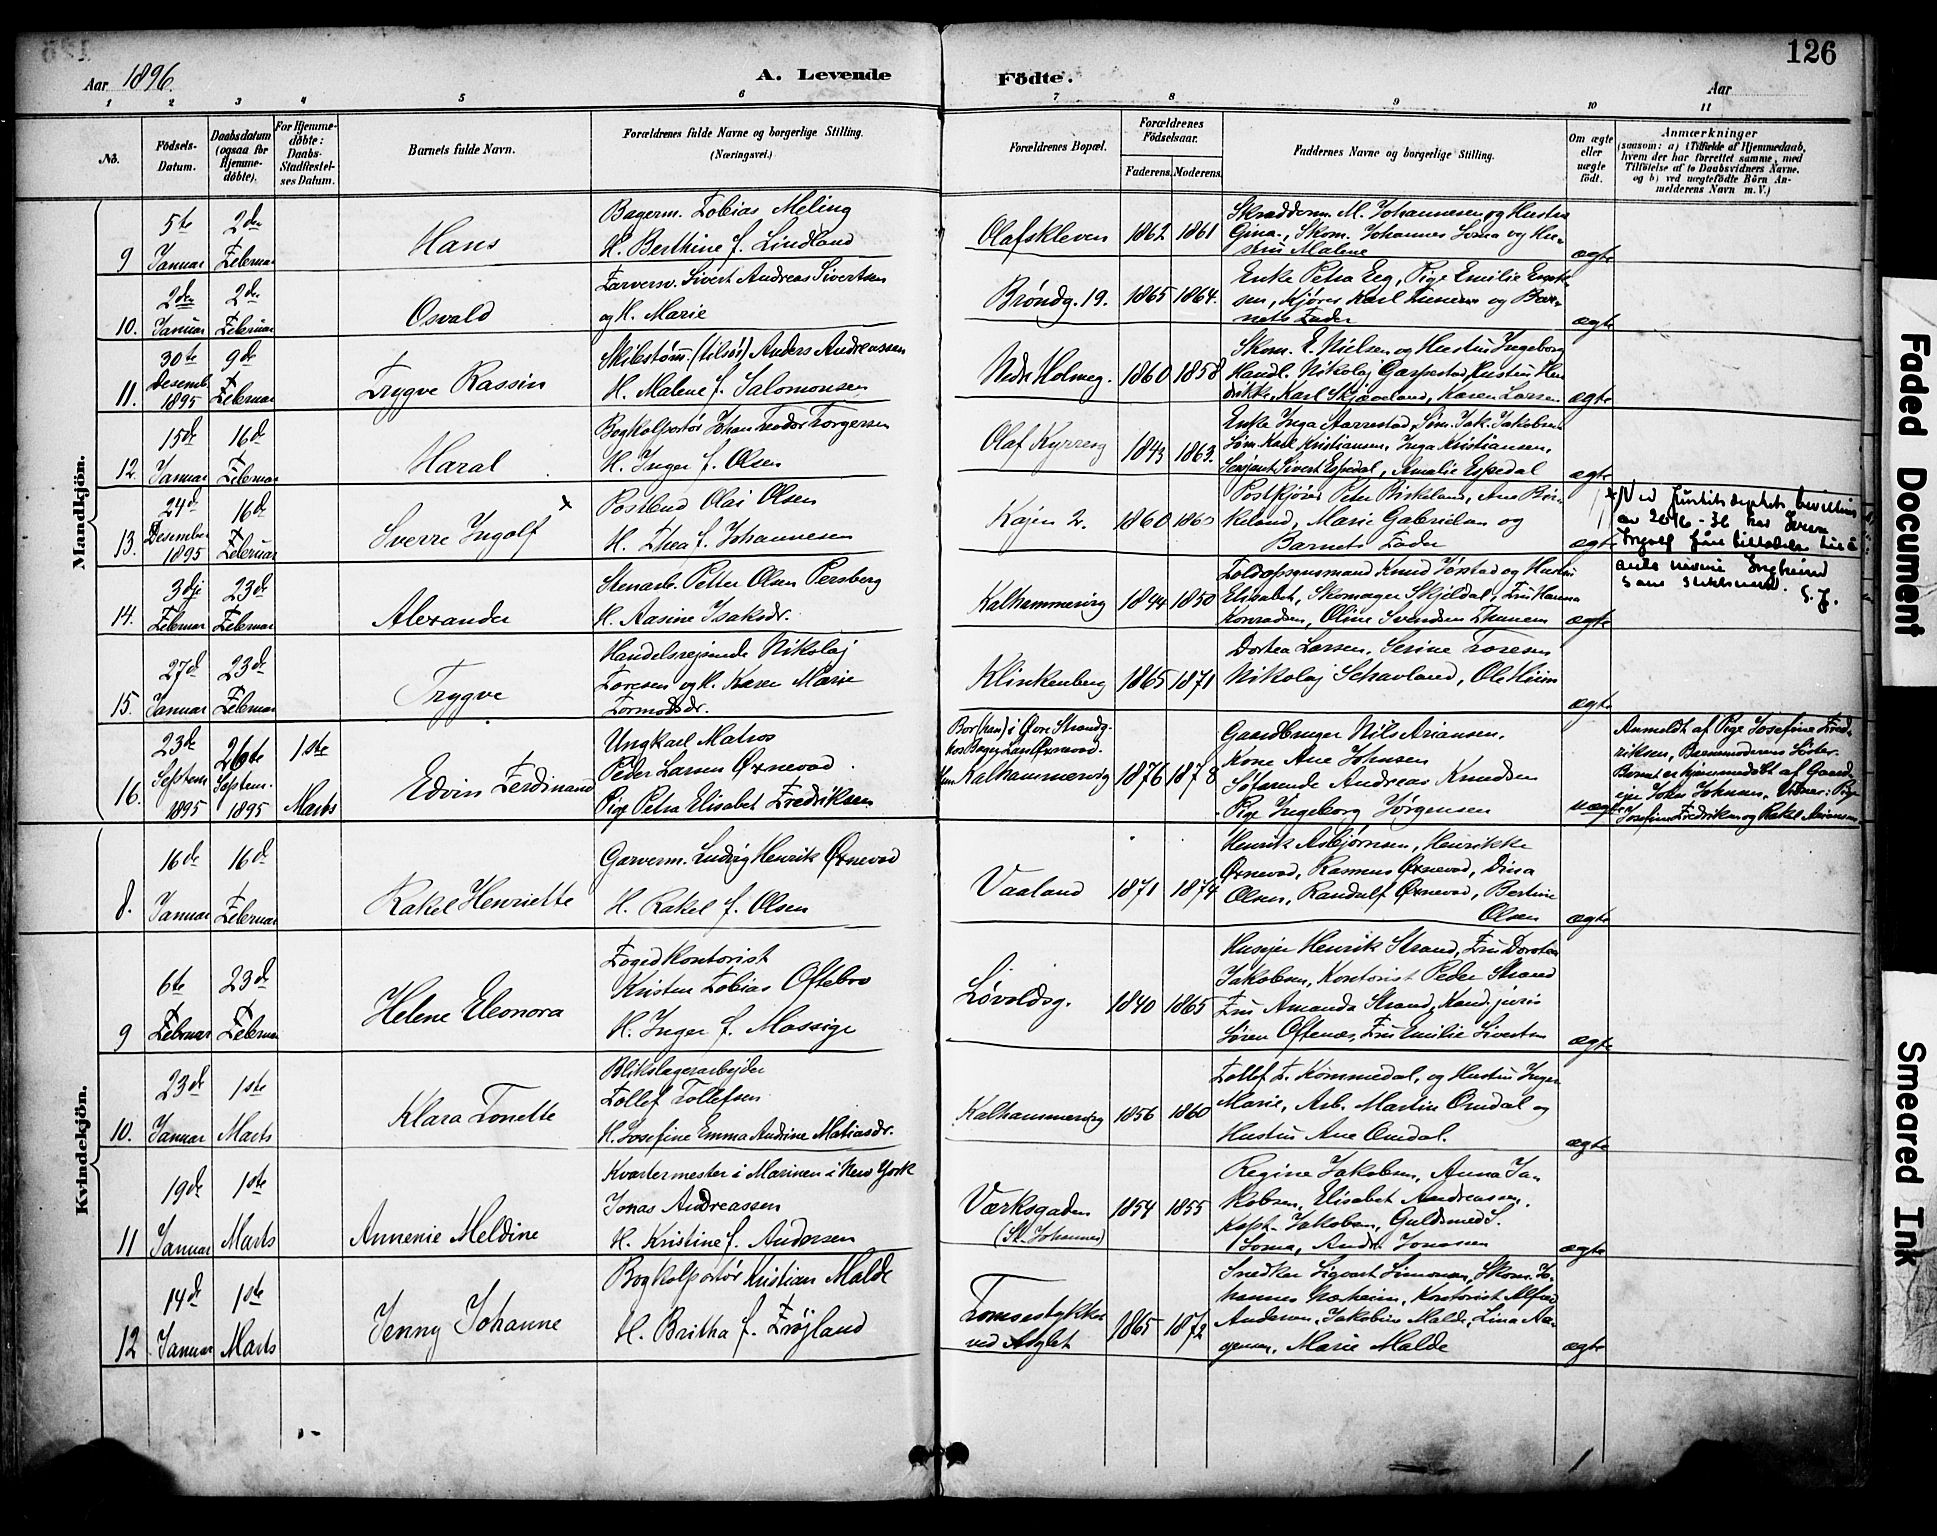 126
Aar 1896.
A. Levende Födte.
Aar
1 2 3 4 5 6 7 8 9 10 11
No.
Födsels-Datum.
Daabsdatum (ogsaa for Hjemme-döbte).
For Hjemme-döbte: Daabs-Stadfæstel-ses Datum.
Barnets fulde Navn.
Forældrenes fulde Navne og borgerlige Stilling. (Næringsvei.)
Forældrenes Bopæl.
Forældrenes Födselsaar.
Faderens. Moderens.
Faddernes Navne og borgerlige Stilling.
Om ægte eller uægte födt.
Anmærkninger
(saasom: a) i Tilfælde af Hjemmedaab,
hvem der har forrettet samme, med
Tilföielse af to Daabsvidners Navne.
og b) ved uægtefödte Börn An-
melderens Navn m. V.)
Mandkjön.
9 5te Januar 2den Februar Hans
Bagerm. Tobias Meling
H. Berthine f. Lindland
Olafskleven 1862 1861
Skrædderm. M. Johannesen og Hustru
Gina, Skom. Johannes Soma og Hu-
stru Malene
ægte
10. 2den Januar 2den Februar Osvald
Farversv. Sivert Andreas Sivertsen
og H. Marie
Brøndg. 19. 1865 1864.
Enke Petra Eeg, Pige Emilie
sen, Kjøres Karl og Bar-
nets Fader
ægte
11. 30te Desemb. 1895 9de Februar Trygve Rassin
Skibstømm. (tilsøs) Anders Andreassen
H. Malene f. Salomonsen
Nedr. Holmeg. 1860 1858
Skom. E. Nielsen og Hustru Ingeborg
Handl. Nikolaj Gaspestad, Hustru Hen-
drikke, Karl Skjæveland, Karen Larsen
ægte
12. 15de Januar 16de Februar Haral
Bogkolportør Johan Teodor Torgersen
H. Inger f. Olsen
Olaf Kyrresg 1843 1863.
Enke Inga Aarrestad, Søm. Jak. Jakobsen
Søm. Karl Kristiansen, Inga Kristiansen,
Sersjant Sivert Espedal, Amalie Espedal
ægte
13. 24de Desember 1895 16de Februar Sverre Ingolf x
Postbud Olai Olsen
H. Thea f. Johannesen
Kajen 2. 1860 1860
Postkjører Peter Birkeland, Ane Bir-
keland, Marie Gabrielsen og
Barnets Fader
ægte
x Ved Justitsdeptets bevilling
av 20/12-36 har Sverre
Ingolf fått tilladelse til å
anta navnet
som slektsnavn. S.J.
14. 3dje Februar 23de Februar Alexander
Stenarb. Petter Olsen Persberg
H. Aasine Isaksdr.
Kalhammervig 1844 1850
Toldopsynsmand Knud Jørstad og Hustru
Elisabet, Skomager Skjeldal, Fru Hanna
Konradsen, Oline Svendsen
ægte
15. 27de Januar 23de Februar Trygve
Handelsrejsende Nikolaj
Toresen og H. Karen Marie
Tormodsdr.
Klinkenberg 1865 1871
Dortea Larsen, Serine Toresen
Nikolaj Schavland, Ole
ægte
16. 23de Septem. 1895 26te Septem. 1895 1ste Marts Edvin Ferdinand
Ungkarl Matros
Peder Larsen Øxnevad
Pige Petra Elisabet Fredriksen
Bor (han) i Øvre Strandg.
hos Bager Lars Øxnevad.
Hun Kalhammervig 1876 1878
Gaardbruger Nils Ariansen,
Kone Ane Johnsen
Søfarende Andreas Knudsen
Pige Ingeborg Jørgensen
uægte
Anmeldt af Pige Josefine Fred-
riksen, Barnemoderens Søster.
Barnet er hjemmedøbt af Gaard-
ejer John Johnsen. Vidner: Pige
Josefine Fredriksen og Rakel Ariansen
Kvindekjön.
8. 16de Januar 16de Februar Rakel Henriette
Garverm. Ludvig Henrik Øxnevad
H. Rakel f. Olsen
Vaaland 1871 1874
Henrik Asbjørnsen, Henrikke
Øxnevad, Rasmus Øxnevad, Dina
Olsen, Randulf Øxnevad, Bertine
Olsen
ægte
9 6te Februar 23de Februar Helene Eleonora
Fogedkontorist
Kristen Tobias Oftebro
H. Inger f. Massige
Løvoldsg. 1840 1865
Husejer Henrik Strand, Fru Dorotea
Jakobsen, Kontorist Peder Strand
Fru Amanda Strand, Kand. juris
Søren Oftenæs, Fru Emilie Sivertsen
ægte
10. 23de Januar 1ste Marts Klara Tonette
Blikslagerarbejder
Tollef Tollefsen
H. Josefine Emma Andrine Matiasdr.
Kalhammervig 1856 1860
Tollef T. Kommedal, og Hustru Inger
Marie, Arb. Martin Omdal og
Hustru Ane Omdal.
ægte
11 19de Januar 1ste Marts Annenie Meldine
Kvartermester i Marinen i New York
Jonas Andreassen
H. Kristine f. Andersen
Værksgaden (St. Johannes) 1854 1855
Regine Jakobsen, Anna Ja-
kobsen, Elisabet Andreassen.
Kapt. Jakobsen, Guldsmed S.
Soma, Andr. Jonassen
ægte
12 14de Januar 1ste Marts Jenny Johanne
Bogkolportør Kristian Malde
H. Britha f. Frøjland
Tomsestykket
ved Asylet 1865 1872
Snedker Sigvart Simonsen, Skom. Jo-
hannes Næheim, Kontorist Alfred
Andersen, Jakobine Malde, Lina Aa-
gesen, Marie Malde
ægte
Faded Document
Smeared Ink